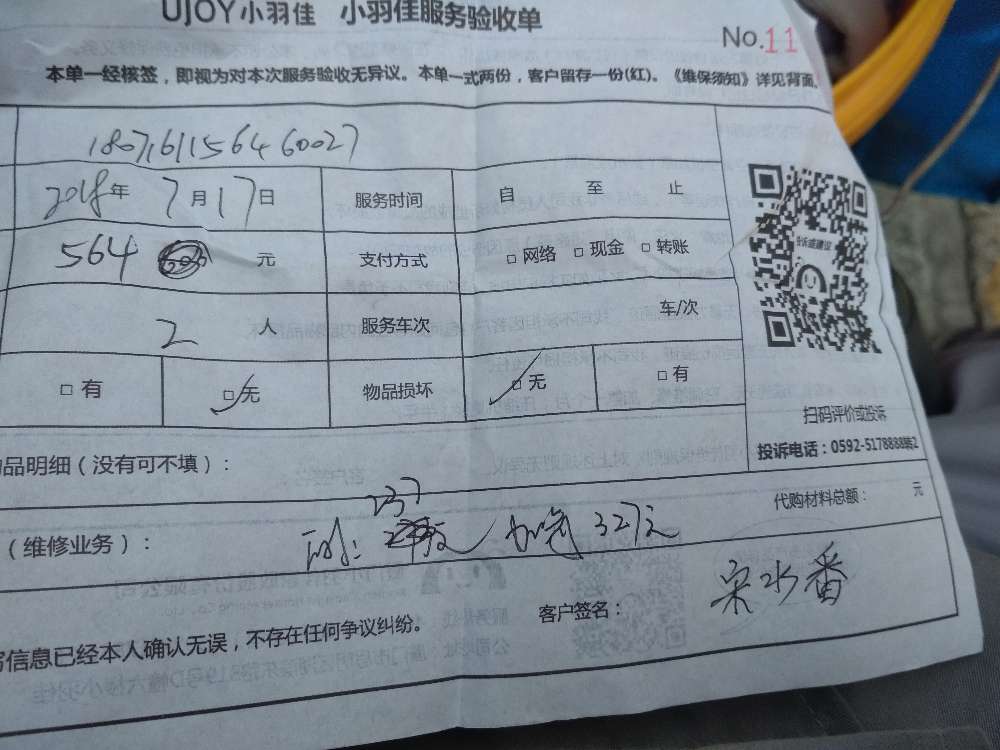 UJOY小羽佳 小羽佳服务验收单
No.11
本单一经核签，即视为对本次服务验收无异议。本单一式两份，客户留存一份(红)。《维保须知》详见背面。
180716115646 60027
2018年 7月17日 服务时间 自 至 止
564 元 支付方式 □网络 □现金 □转账
2 人 服务车次 车/次
□有 □无 物品损坏 □无 □有
扫码评价或投诉
投诉电话：0592-5178888转2
品明细（没有可不填）：
代购材料总额： 元
237
（维修业务）： 327元
客户签名： 宋水番
信息已经本人确认无误，不存在任何争议纠纷。